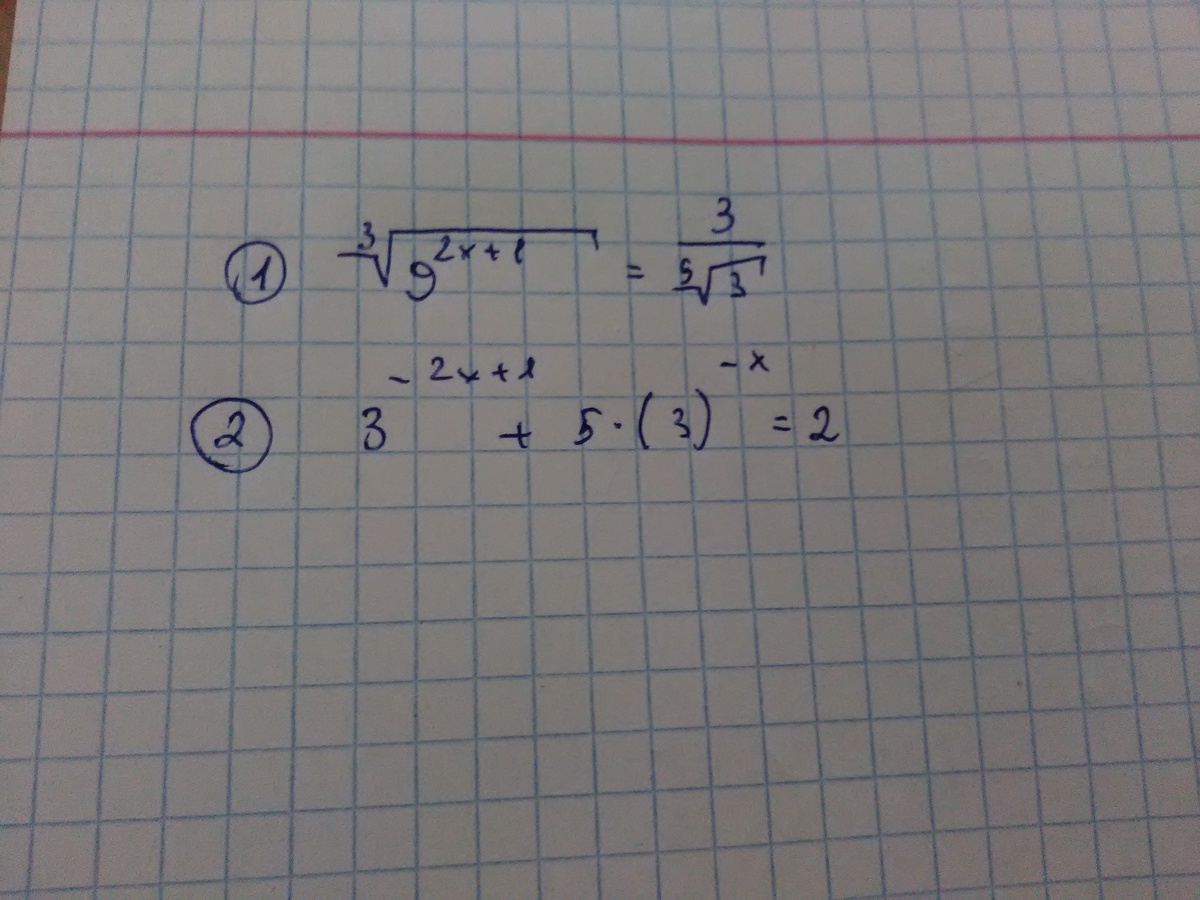 ① ∛(9^(2x+1)) = 3/⁵√3
② 3^(-2x+1) + 5·(3)^(-x) = 2